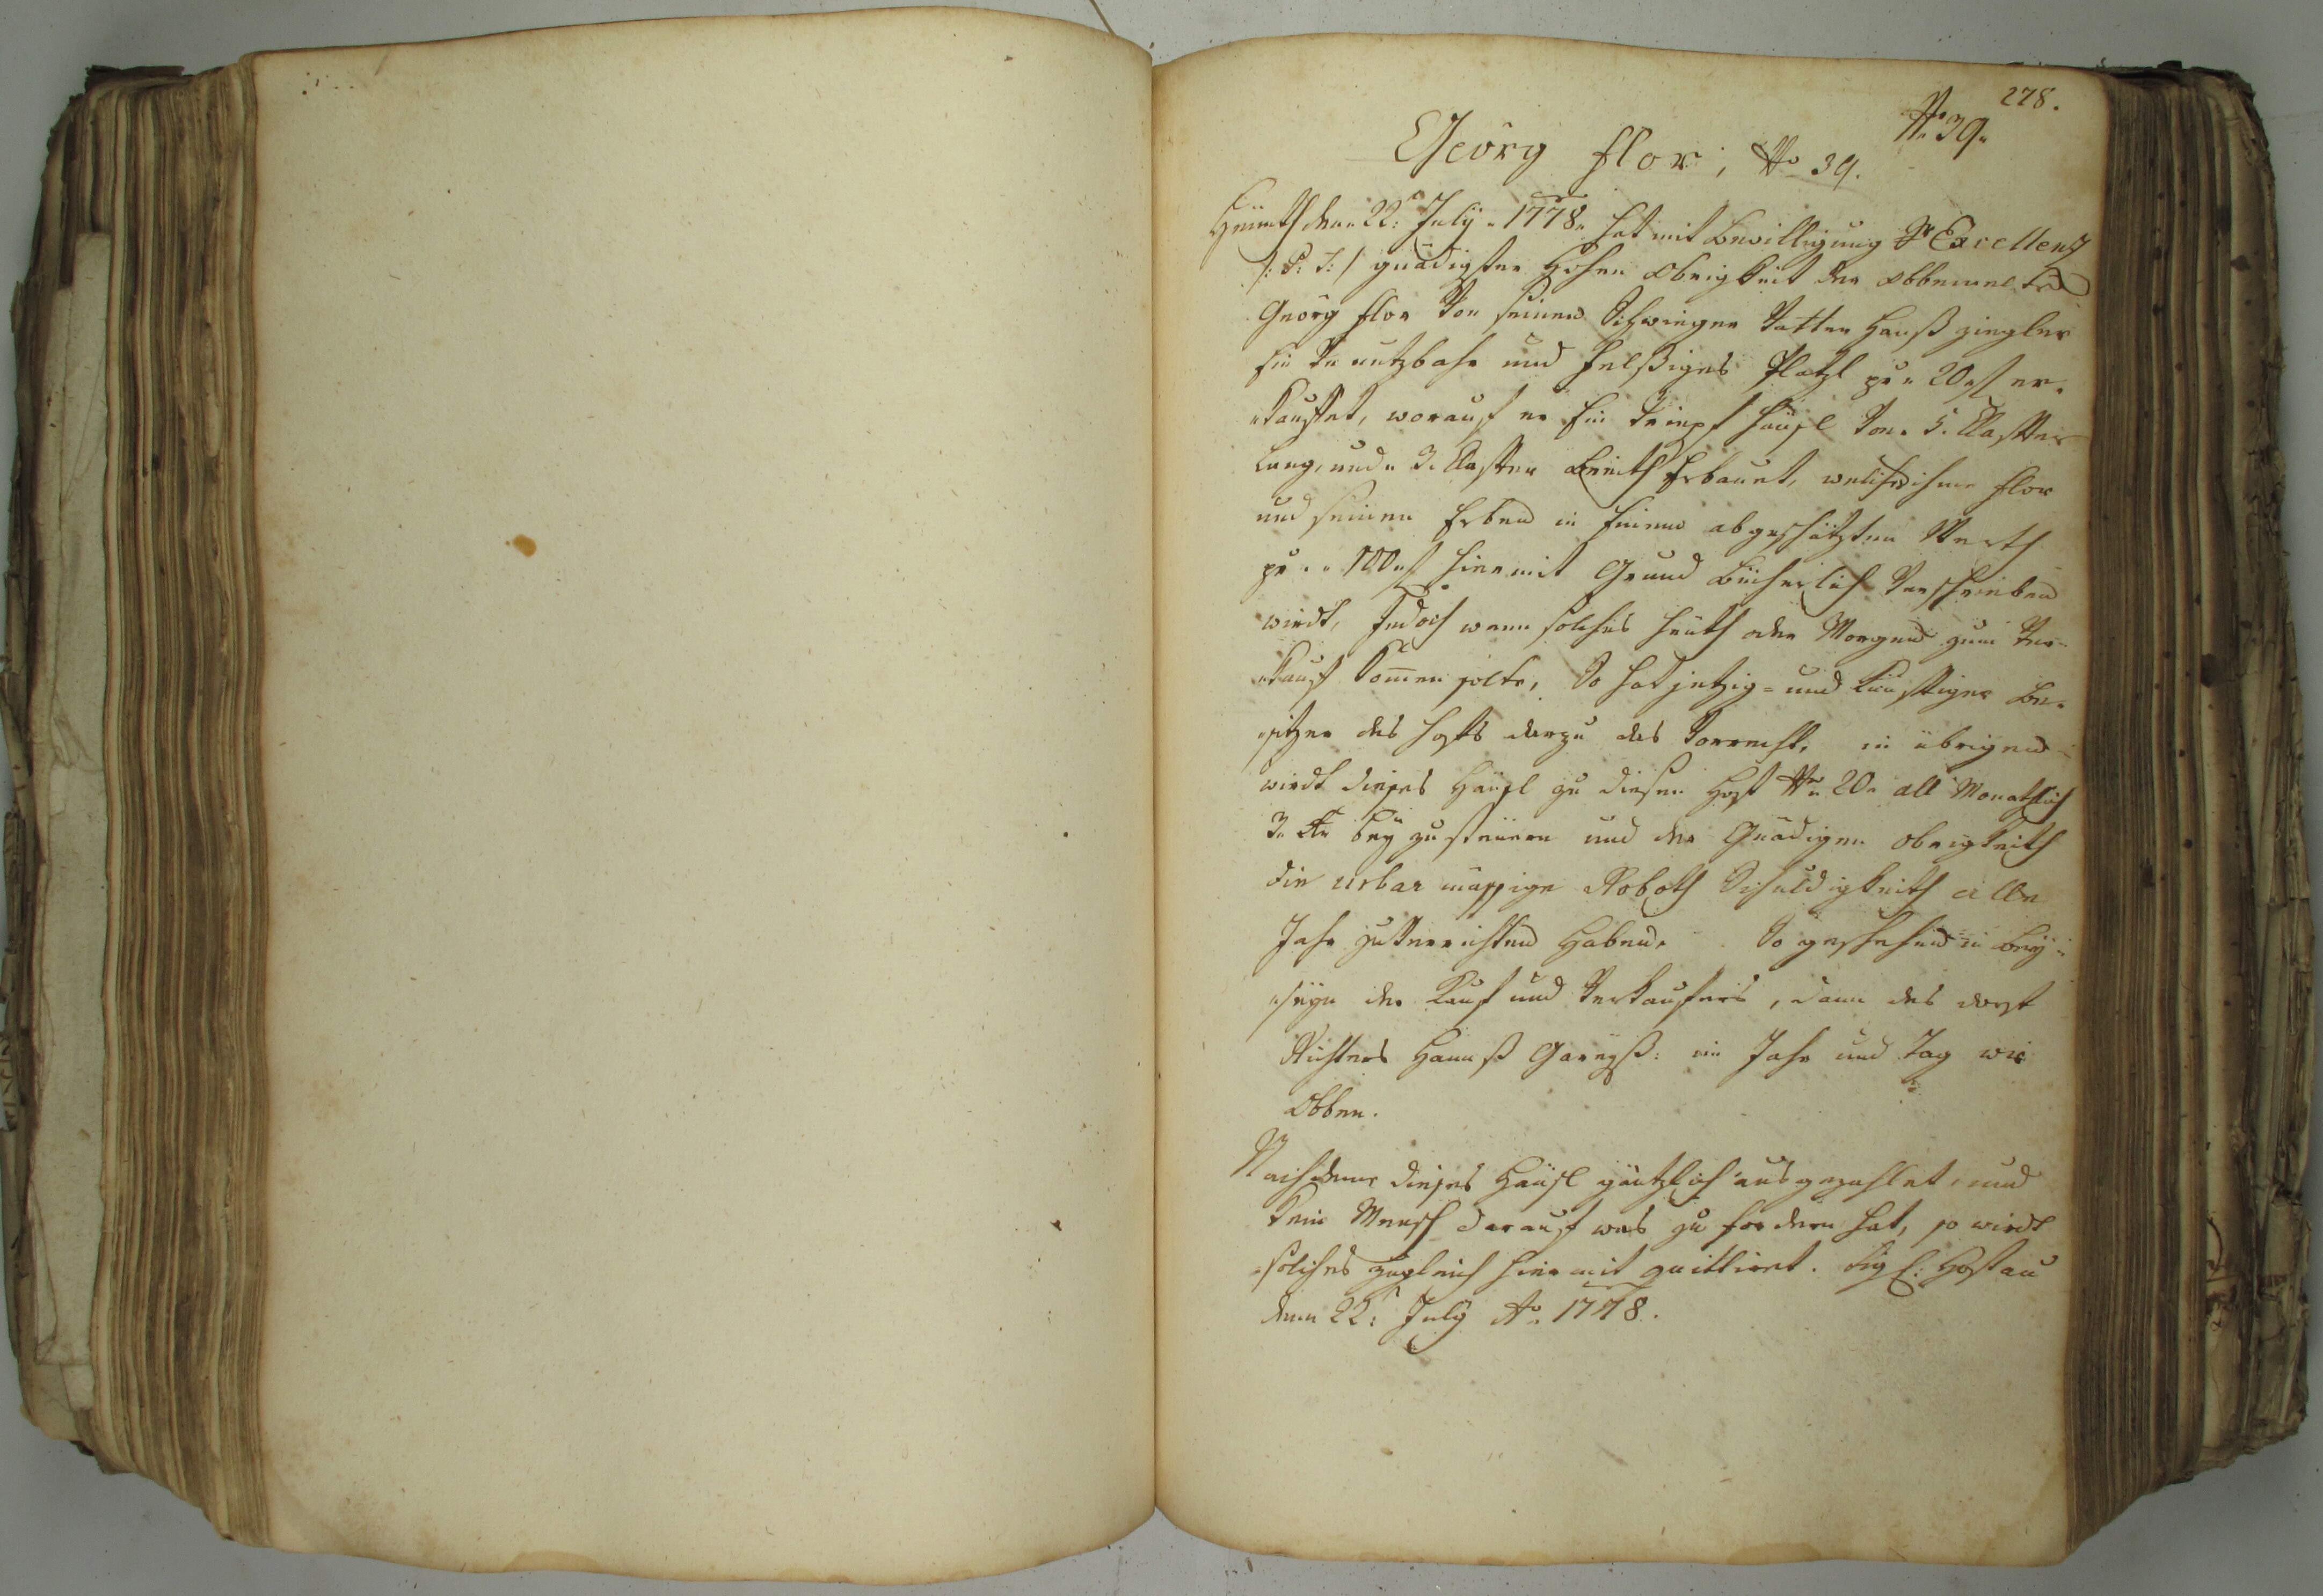 278.
No 39.
Georg Flor, No 39.
Heünth den 22t July 1778 hat mit Bewilligung Sr Excellenz
/: P: T: / gnädigster Hohen Obrigkeit der obbemelte
Georg Flor Von seinen Schwieger Vatter Hanß Ziegler
Ein Unnutzbahr und Felßiges Platzl pr 20 f er-
kauffet, worauf er Ein Häusl Von 5. Klaffter
Lang, und 3. Klaffter Breith Erbauet, welches ihme Flor
und seinen Erben in Einen abgeschätzten Werth
pr 100 f hiermit Grund Bücherlich Verschrieben
wirdt, Jedoch wann solches heuth oder Morgen zum Ver-
kauf kom̄en solte, So hat jetzig- und künftiger Be-
sitzer des Hofs darzu das Vorrecht, in übrigen
wirdt dieses Häusl zu diesen Hof No 20 all Monathlich
3 Kr bey zusteüern und der Gnädigen obrigkeith
die urbar mässige Roboth Schuldigkeith alle
Jahr zu Verrichten Haben. So geschehen in Bey-
seyn des Kauf und Verkauffers, dann des dorf
Richters Hannß im Jahr und Tag wie
Obben.
Nachdeme dieses Häusl gäntzlich ausgezahlet, und
kein Mensch darauf was zu fordern hat, so wirdt
solches zugleich hiermit quittiret. Sigl: Hostau
den 22t July Ao 1778.